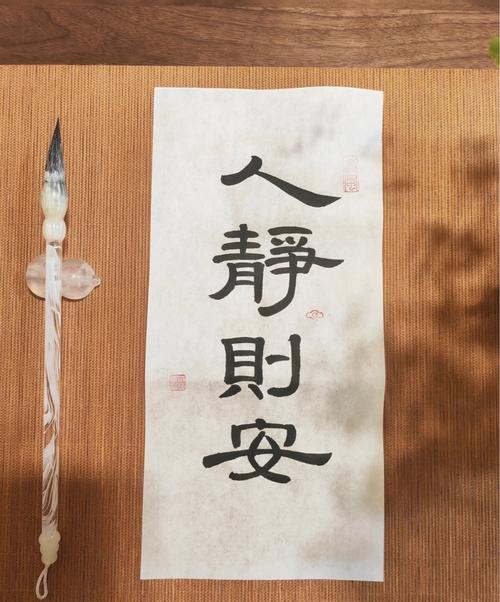 人靜則安